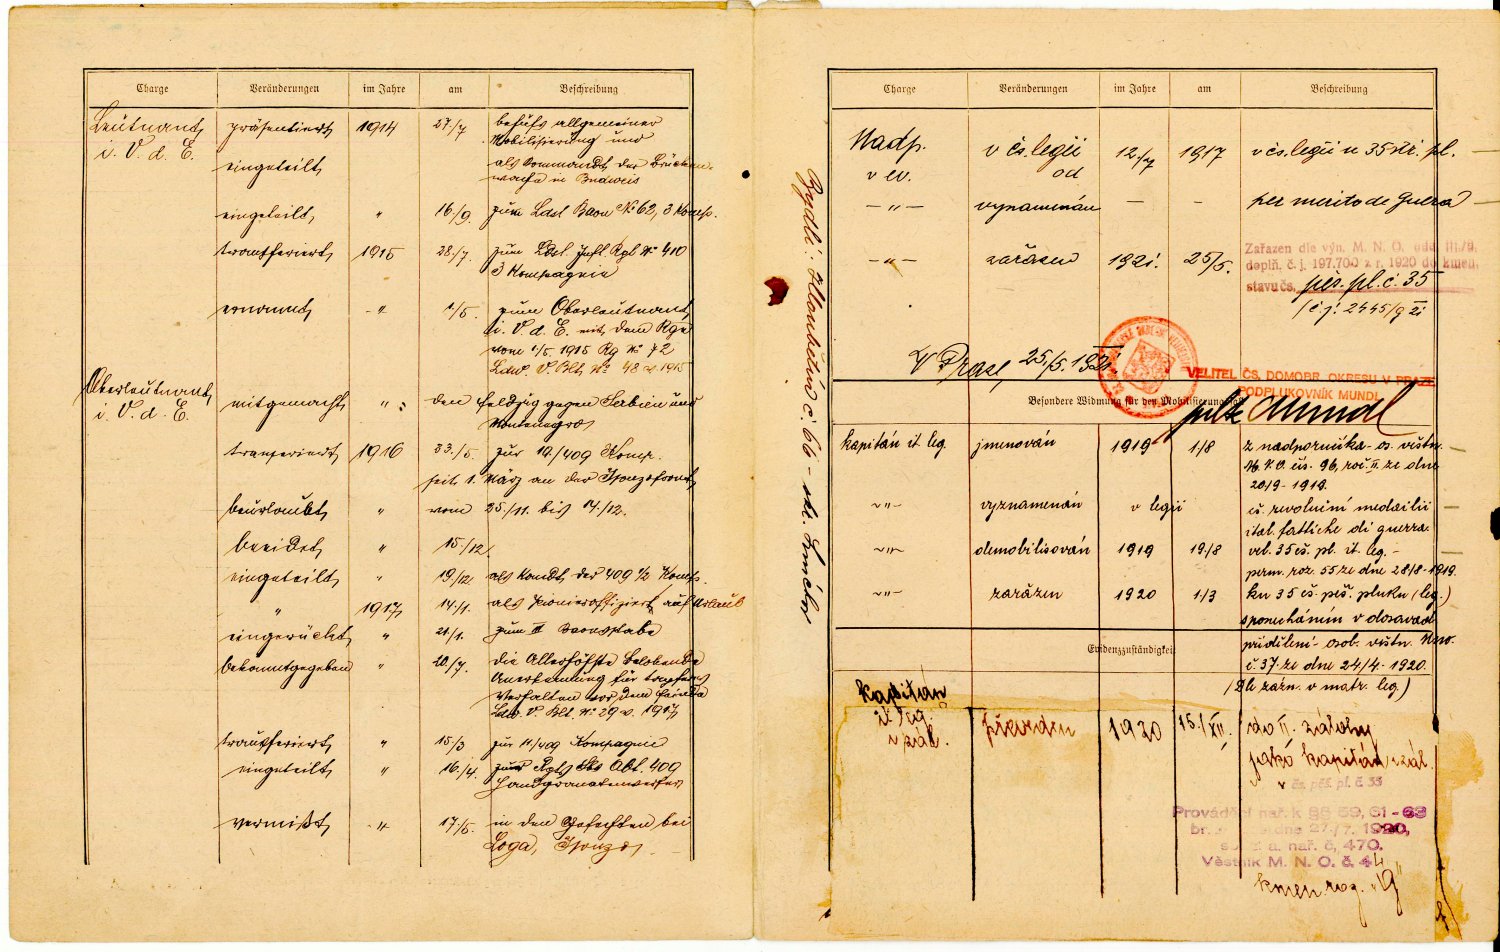 Charge Veränderungen im Jahre am Beschreibung
Leutnant präsentiert 1914 27./7. behufs allgemeiner
i. V. d. E. Mobilisierung und
eingeteilt als Kommandt der Brücken-
wache in Budweis
eingeteilt " 16/9. zum Ldst Baon № 62, 3 Komp.
transferiert 1915 28./7. zum Ldst. Inft. Rgt № 410
3 Kompagnie
ernannt -"- 1/5. zum Oberleutnant
i. V. d. E. mit dem Rge
vom 1/5. 1915 Rg № 72
Ldw. V Blt № 48 v. 1915
Oberleutnant
i. V. d. E. mitgemacht " : den Feldzug gegen Serbien und
Montenegro
transferiert 1916 zur 14./409 Komp.
seit 1. März an der Isonzofront
beurlaubt " vom 25./11. bis 14./12.
beeidet " 15./12.
eingeteilt " 19./12. als Komdt der 409 1/2 Komp.
" 1917 14./1. als Pionieroffizier auf Urlaub
eingerückt " 21/1. zum III Baonsstabe
bekanntgegeben " 20./7. die Allerhöchste belobende
Anerkennung für tapferes
Verhalten vor dem Feinde
Ldw. V. Blt. № 29 v. 1917
transferiert " 15/3 zur 11/409 Kompagnie
eingeteilt " 16./4. zur Abt. 409
Handgranatenwerfer
vermißt -"- 17./5. in den Gefechten bei
Loga, Isonzo.
Bydlí: Hloubětín č. 66 - okr.
Charge Veränderungen im Jahre am Beschreibung
Nadp. v čs. legii 12./7 1917 v čs. legii u 35 stř. pl.
v ev. od
-"- vyznamenán - - per merito de Guera
-"- zařazen 1921. 25/5.
Zařazen dle výn. M. N. O. odd. III./9.
doplň. č. j. 197.700 z r. 1920 do kmen.
stavu čs. pěš. pl. č. 35
(č. j: 2445/9 21
V Praze, 25./5. 1921
VELITEL ČS. DOMOBR. OKRESU V PRAZE
PODPLUKOVNÍK MUNDL
Besondere Widmung für den Mobilisierungsfall
Mundl
kapitán it. leg. jmenován 1919 1/8 z nadporučíka - os. věstn.
M. N. O. čís. 96, roč. II. ze dne
20/9 - 1919.
-"- vyznamenán v legii čs. revoluční medailií
ital. fattiche di guerra
-"- demobilisován 1919 19./8 vel. 35 čs. pl. it. leg. -
perm. roz. 55 ze dne 28/8 - 1919.
-"- zařazen 1920 1./3 ku 35 čs. pěš. pluku (leg.)
s ponecháním v dosavad.
Evidenzzuständigkeit
přidělení - osob. věstn. MNO.
č. 37. ze dne 24/4 - 1920.
(Dle zázn. v matr. leg.)
kapitán
it. leg. převeden 1920 15./XII. do II. zálohy
v zál. jako kapitán v zál.
v čs. pěš. pl. č. 35
Prováděcí nař. k §§ 59, 61 - 63
1920,
nař. č, 470.
Věstník M. N. O. č. 44
kmen. roz. "G"